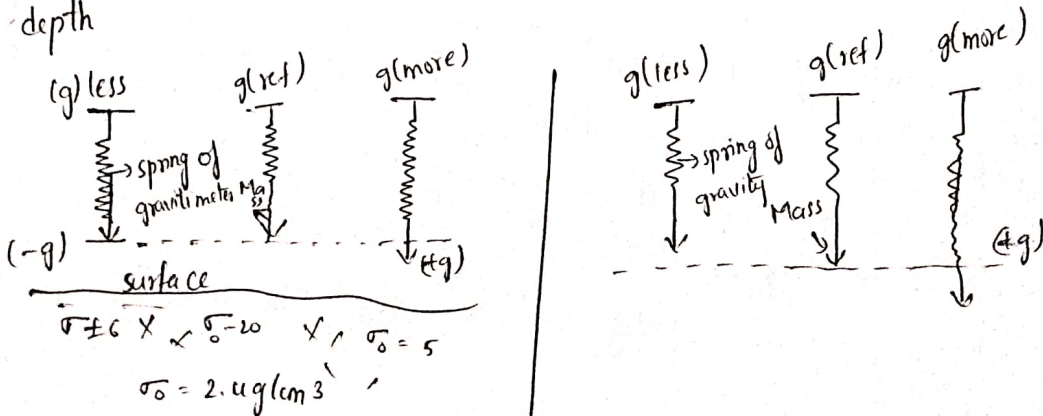 depth
(g) less
g(ref)
g(more)
spring of
gravitimeter
Mass
(-g)
(+g)
surface
σ±6 X
σ₀-20
X
σ₀ = 5
σ₀ = 2.4g/cm3
g(less)
g(ref)
g(more)
spring of
gravity
Mass
(+g)